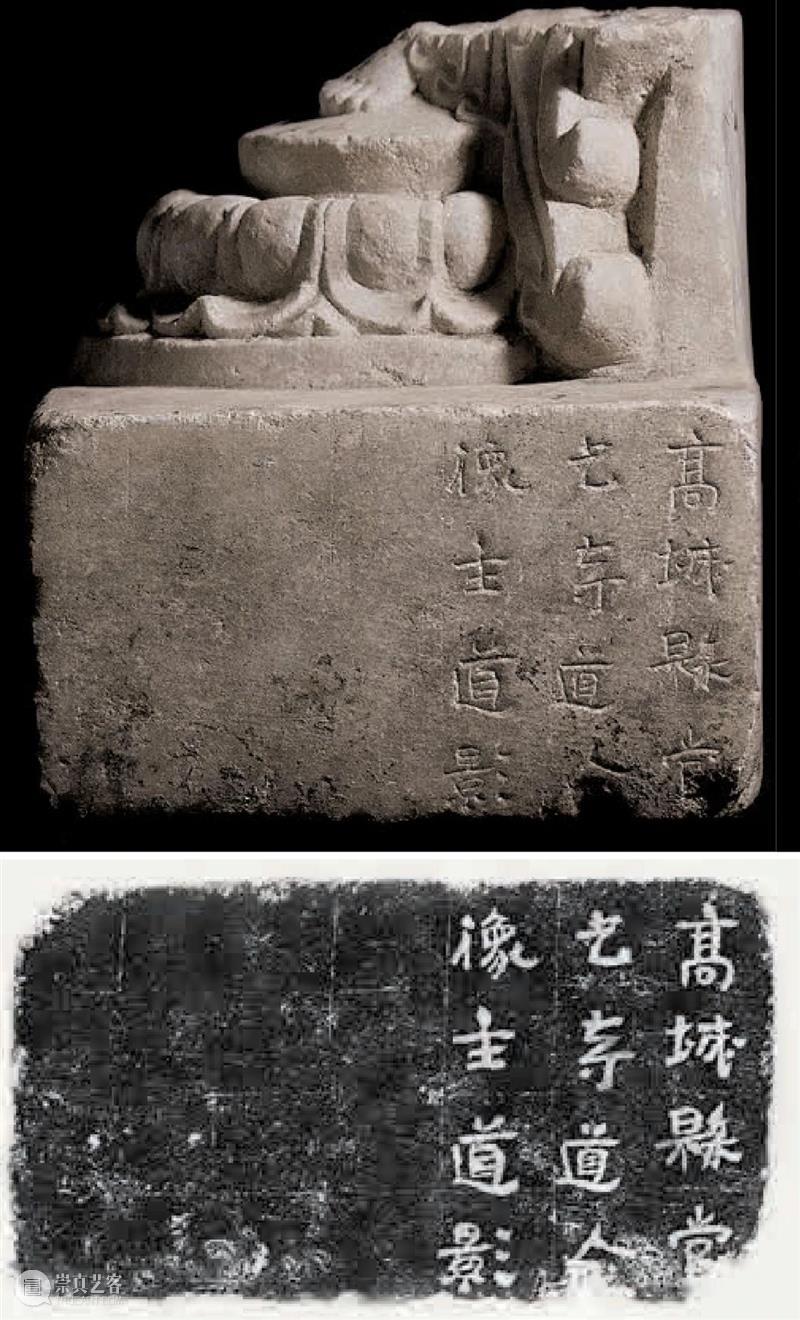 髙城縣常
光寺道人
像主道影
髙城縣常
光寺道人
像主道影
崇真艺客